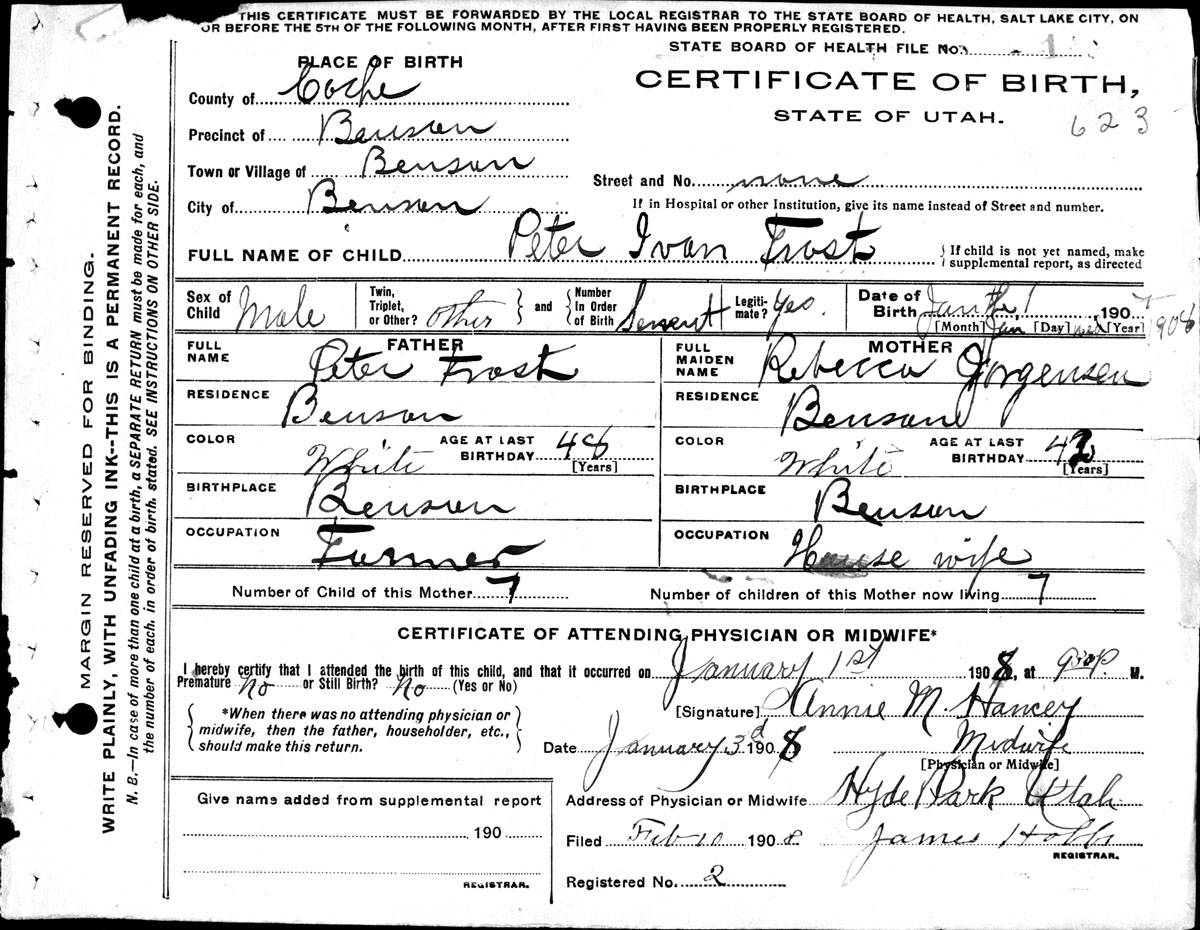 THIS CERTIFICATE MUST BE FORWARDED BY THE LOCAL REGISTRAR TO THE STATE BOARD OF HEALTH, SALT LAKE CITY, ON
OR BEFORE THE 5TH OF THE FOLLOWING MONTH, AFTER FIRST HAVING BEEN PROPERLY REGISTERED.
STATE BOARD OF HEALTH FILE No. 1
PLACE OF BIRTH
CERTIFICATE OF BIRTH,
STATE OF UTAH.
623
County of Cache
Precinct of Benson
Town or Village of Benson
Street and No. none
City of Benson
If in Hospital or other Institution, give its name instead of Street and number.
FULL NAME OF CHILD Peter Ivan Frost
{If child is not yet named, make
supplemental report, as directed
Sex of Child Male
Twin, Triplet, or Other? other } and { Number In Order of Birth
Legiti-mate? Yes.
Date of Birth Jan 1, 190
[Month] Jan [Day] Wed [Year] 1908
FATHER
FULL NAME Peter Frost
RESIDENCE Benson
COLOR White AGE AT LAST BIRTHDAY 48 [Years]
BIRTHPLACE Benson
OCCUPATION Farmer
MOTHER
FULL MAIDEN NAME Rebecca Jorgensen
RESIDENCE Benson
COLOR White AGE AT LAST BIRTHDAY 42 [Years]
BIRTHPLACE Benson
OCCUPATION House wife
Number of Child of this Mother 7 Number of children of this Mother now living 7
CERTIFICATE OF ATTENDING PHYSICIAN OR MIDWIFE*
I hereby certify that I attended the birth of this child, and that it occurred on January 1st 1908, at P. M.
Premature No or Still Birth? No (Yes or No)
{ *When there was no attending physician or
midwife, then the father, householder, etc.,
should make this return. }
[Signature] Annie M. Hancey
Date January 3d 1908 Midwife
[Physician or Midwife]
Address of Physician or Midwife Hyde Park Utah
Filed Feb 10 1908 James Hobbs
REGISTRAR.
Registered No. 2
Give name added from supplemental report
190
REGISTRAR.
MARGIN RESERVED FOR BINDING.
WRITE PLAINLY, WITH UNFADING INK--THIS IS A PERMANENT RECORD.
N. B.—In case of more than one child at a birth, a SEPARATE RETURN must be made for each, and
the number of each, in order of birth, stated. SEE INSTRUCTIONS ON OTHER SIDE.